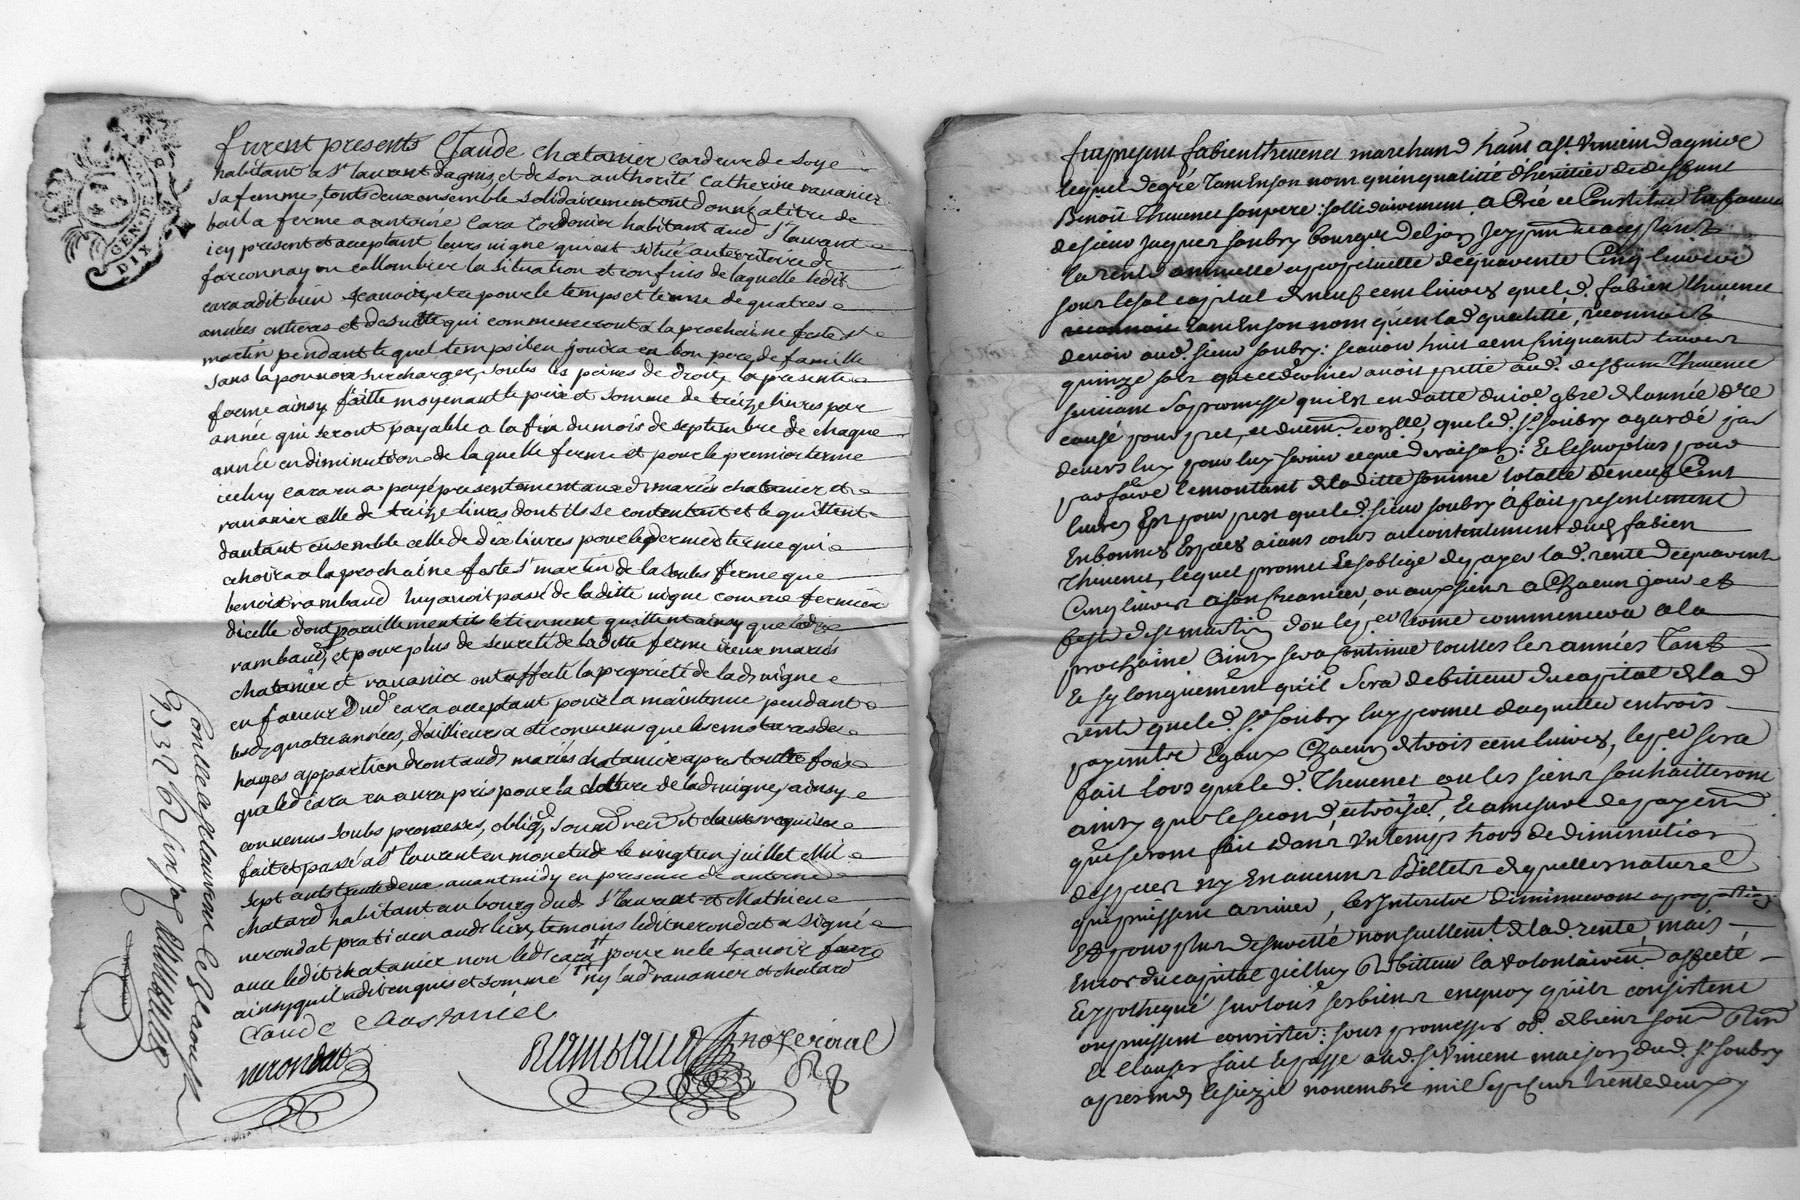 GEN. DE
DIX
furent presents Claude chatanier cardeur de soye
habitant a St laurant dagny et de son authorité Catherine rauanier
sa femme, touts deux ensemble solidairement ont donné a titre de
bail a ferme a antoine Cara Cordonier habitant aud. St laurant
icy present et acceptant leurs uigne qui est situé au territoire de
farconnay ou collombier la situation et confins de laquelle ledit
cara a dit bien scauoir, et ce pour le temps et terme de quatres
années entieres et de suitte qui commenceront a la prochaine feste st
martin pendant lequel temps il en jouira en bon pere de famille
sans la pouuoir surcharger, soubs les peines de droit, la presente
ferme ainsy faitte moyenant le prix et somme de treize liures par
année qui seront payable a la fin du mois de septembre de chaque
année en diminution de la quelle ferme et pour le premier terme
iceluy cara a payé presentement aux d. mariés chatanier et
rauanier celle de treize liures dont ils se contentent et le quittent
dautant ensemble celle de dix liures pour le dernier terme qui
echoira a la prochaine feste st martin de la soubs ferme que
benoist rambaud luy auoit passé de laditte uigne comme fermier
dicelle dont pareillement ils le tiennent quitte ainsy que led.
rambaud, et pour plus de seureté de laditte ferme iceux mariés
chatanier et rauanier ont affecté la propriété de lad. uigne
en faueur dud. cara acceptant pour la maintenue pendant
lesd. quatre années, d'ailleurs a été conuenus que les
hayes appartiendront auxd. mariés chatanier apres toutte fois
que led. cara en aura pris pour la cloture de lad. uigne, ainsy
conuenus soubs promesses, obligõn, soumõn renõn et clauses requises
fait et passé a St laurent en mon etude le uingt un juillet mil
sept cents trente deux auant midy en presence de antoine
chatard habitant au bourg dud. St laurant et Mathieu
nerondat praticien aud. lieu, temoins ledit nerondat a signé
auec ledit chatanier non led. cara pour ne le scauoir faire
ainsy qu'il a dit enquis et sommé ny lad. rauanier et chatard
Claude Chastaniel
nerondat
Rambaud no.re roial
Controllé a St laurent le
fut present fabien Theuenet marchand hãnt a St Vincent dagnie
lequel de gré tant en son nom qu'en qualitté d'heritier de deffunt
Benoist Theuenet son pere: sollidairement a Créé et Constitué En faueur
de sieur Jaques soubry bourgeois de lyon Icy present et acceptant
la rente annuelle et perpetuelle de quarente Cinq liures
pour le sol capital de neuf cent liures que led. fabien Theuenet
reconnoit tant En son nom qu'en lad. qualitté, reconnoit
deuoir aud. sieur soubry: scauoir huit cent cinquante liures
quinze sols que ce dernier auoit pretté aud. deffunt Theuenet
suiuant sa promesse qui Est en datte du 9bre de l'année d.re
causé pour pret, et duem. cont.llé, que led. sr soubry a gardé par
deuers luy pour luy seruir ce que de raison: Et le surplus pour
parfaire le montant de laditte somme totalle de neuf Cent
liures Est pour pret que led. sieur soubry a fait presentement
En bonnes Especes aiant cours au contentement dud. fabien
Theuenet, lequel promet et s'oblige de payer lad. rente de quarente
Cinq liures a son Creancier, ou aux siens a Chacun jour et
feste de st martin dont le p.er terme commencera a la
prochaine Ainsy sera continué touttes les années Tant
Et sy longuement qu'il sera debitteur du capital de lad.
rente que led. sr soubry luy promet d'aquitter en trois
payemens Egaux Chacun de trois cent liures, le p.er sera
fait lors que led. Theuenet ou les siens souhaitteront
ainsy que le second, et troisié., Et a mesure de payem
qui seront fait dans Un temps hors de diminution
d'especes ny En aucuns Billets de quelle nature
qui puissent arriuer, les Interets diminueront a proportion
Et pour plus de sureté non seullem.t de lad. rente, mais
Encor du capital jcelluy debitteur la volontairem.t affecté
Et ypothequé sur tous ses biens en quoy qu'ils consistent
ou puissent consister: sous promesses ob. de biens soum. Ren.
Et Clauses fait Et passé aud. St Vincent maison dud. sr soubry
apres midy le sezié novembre mil sept cent trente deux